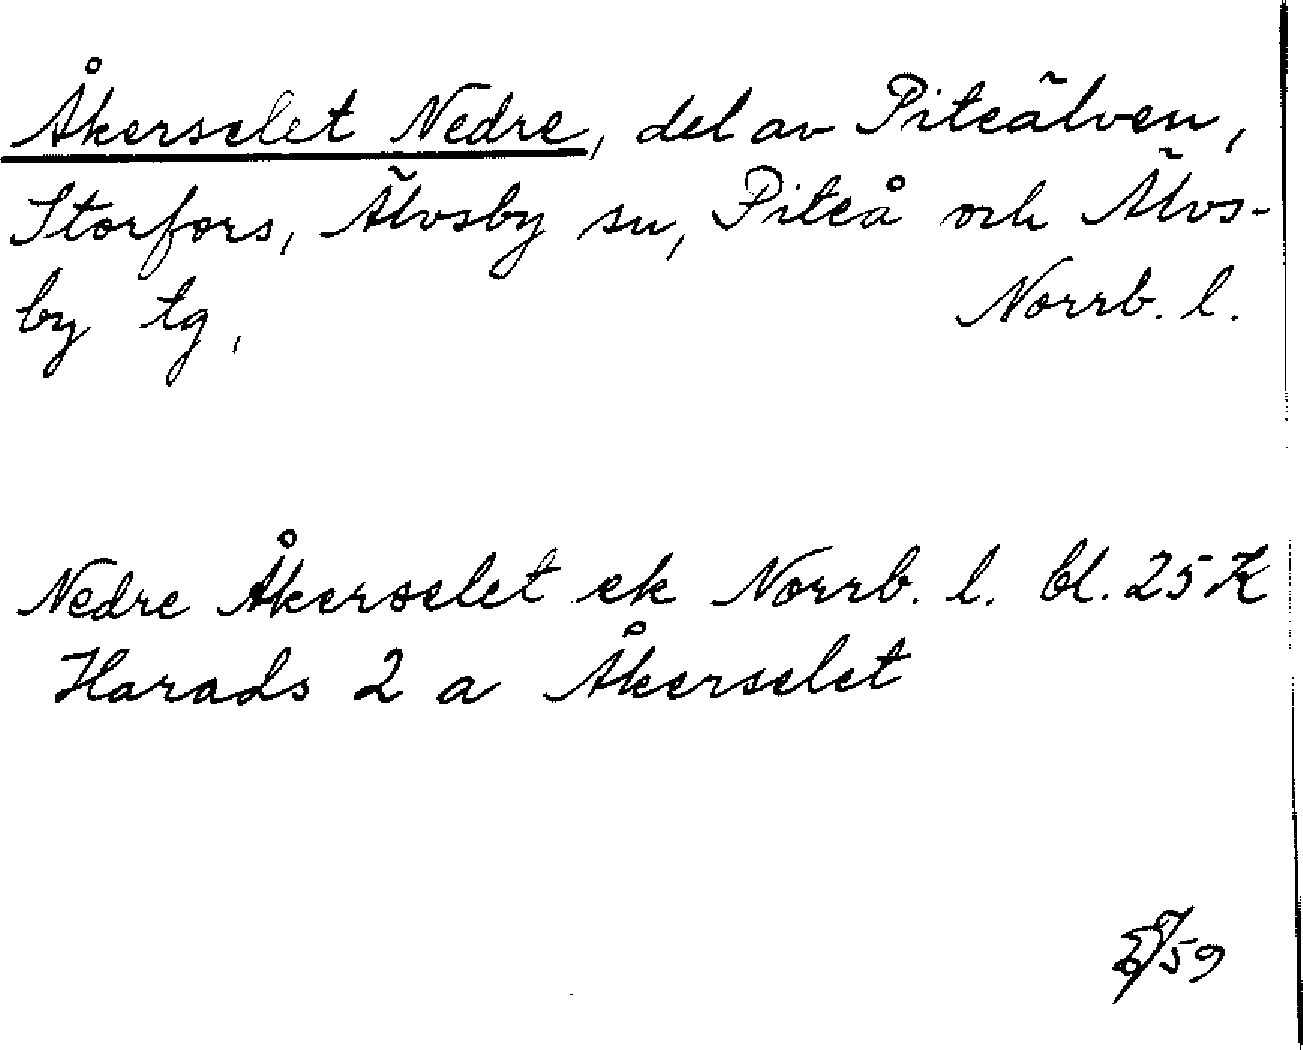 Åkerselet Nedre, del av Piteälven,
Storfors, Älvsby sn, Piteå och Älvs-
by tg, Norrb. l.
Nedre Åkerselet ek Norrb. l. bl. 25 K
Harads 2 a Åkerselet
/59